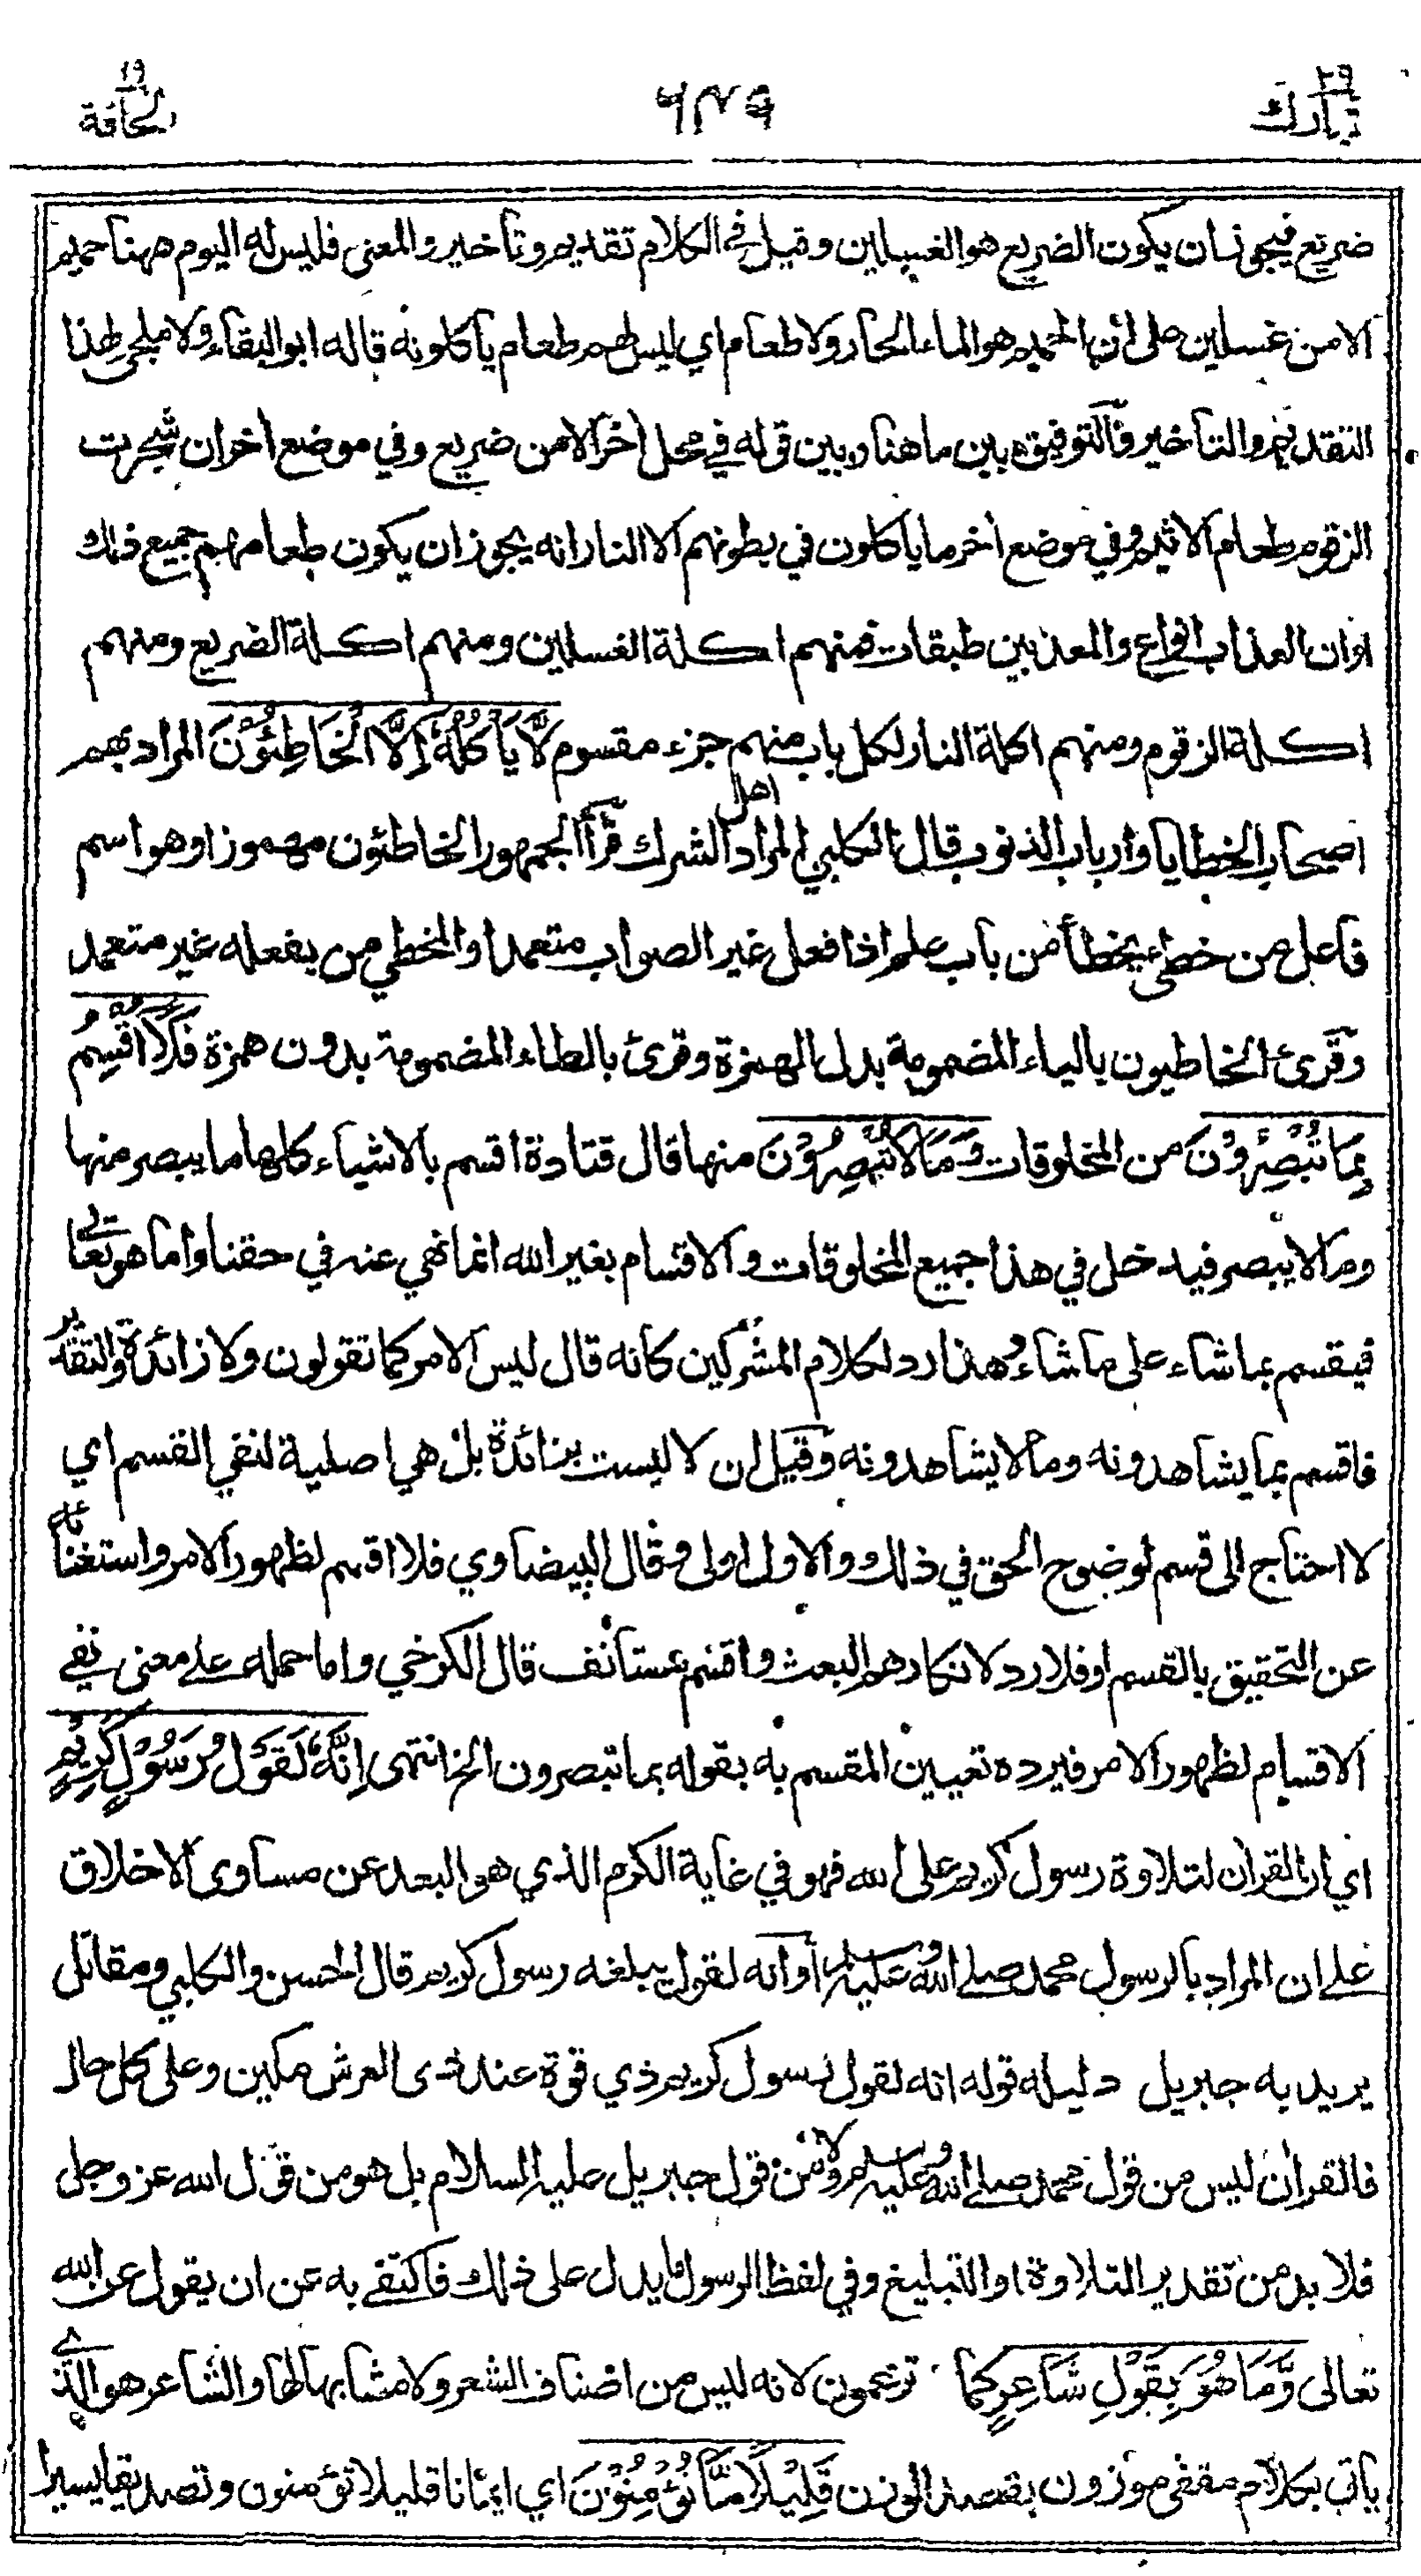 ٢٩
تبارك
١٩
الحاقة
ضريع فيجوز ان يكون الضريع هو الغسلين وقيل في الكلام تقديم وتأخير والمعنى فليس له اليوم ههنا حميم
الا من غسلين على ان الحميم هو الماء الحار ولا طعام اي ليس لهم طعام يأكلونه قاله ابو البقاء ولا ملجئ لهذا
التقديم والتأخير والتوفيق بين ما هنا وبين قوله في محل اخر الا من ضريع وفي موضع اخر ان شجرت
الزقوم طعام الاثيم وفي موضع اخر ما يأكلون في بطونهم الا النار انه يجوز ان يكون طعامهم جميع ذلك
اوان العذاب انواع والمعذبين طبقات فمنهم اكلة الغسلين ومنهم اكلة الضريع ومنهم
اكلة الزقوم ومنهم اكلة النار لكل باب منهم جزء مقسوم لَّا يَأْكُلُهُ إِلَّا الْخَاطِئُوْنَ المراد بهم
اصحاب الخطايا وارباب الذنوب قال الكلبي المراد اهل الشرك قرأ الجمهور الخاطئون مهموزا وهو اسم
فاعل من خطئ يخطأ من باب علم اذا فعل غير الصواب متعمدا والمخطي من يفعله غير متعمد
وقرئ الخاطيون بالياء المضمومة بدل الهمزة وقرئ بالطاء المضمومة بدون همزة فَلَا اُقْسِمُ
بِمَا تُبْصِرُوْنَ من المخلوقات وَمَا لَا تُبْصِرُوْنَ منها قال قتادة اقسم بالاشياء كلها ما يبصر منها
وما لا يبصر فيدخل في هذا جميع المخلوقات والاقسام بغير الله انما نهي عنه في حقنا واما هو تعالى
فيقسم بما شاء على ما شاء وهذا رد لكلام المشركين كانه قال ليس الامر كما تقولون ولا زائدة والتقدير
فاقسم بما يشاهدونه وما لا يشاهدونه وقيل ان لا ليست بزائدة بل هي اصلية لنفي القسم اي
لا احتاج الى قسم لوضوح الحق في ذلك والاول اولى وقال البيضاوي فلا اقسم لظهور الامر واستغنائه
عن التحقيق بالقسم او فلا رد لانكارهم البعث واقسم مستأنف قال الكرخي واما حمله على معنى نفي
الاقسام لظهور الامر فيرده تعيين المقسم به بقوله بما تبصرون الخ انتهى إِنَّهُ لَقَوْلُ رَسُوْلٍ كَرِيْمٍ
اي ان القران لتلاوة رسول كريم على الله فهو في غاية الكرم الذي هو البعد عن مساوى الاخلاق
على ان المراد بالرسول محمد صلى الله عليه وسلم أو انه لقول يبلغه رسول كريم قال الحسن والكلبي ومقاتل
يريد به جبريل دليله قوله انه لقول رسول كريم ذي قوة عند ذى العرش مكين وعلى كل حال
فالقران ليس من قول محمد صلى الله عليه وسلم ولا من قول جبريل عليه السلام بل هو من قول الله عز وجل
فلا بد من تقدير التلاوة او التبليغ وفي لفظ الرسول ما يدل على ذلك فاكتفى به عن ان يقول عن الله
تعالى وَّمَا هُوَ بِقَوْلِ شَاعِرٍ كما تزعمون لانه ليس من اصناف الشعر ولا مشابها لها والشاعر هو الذي
يأتي بكلام مقفى موزون بقصد الوزن قَلِيْلًا مَّا تُؤْمِنُوْنَ اي ايمانا قليلا تؤمنون وتصديقا يسيرا